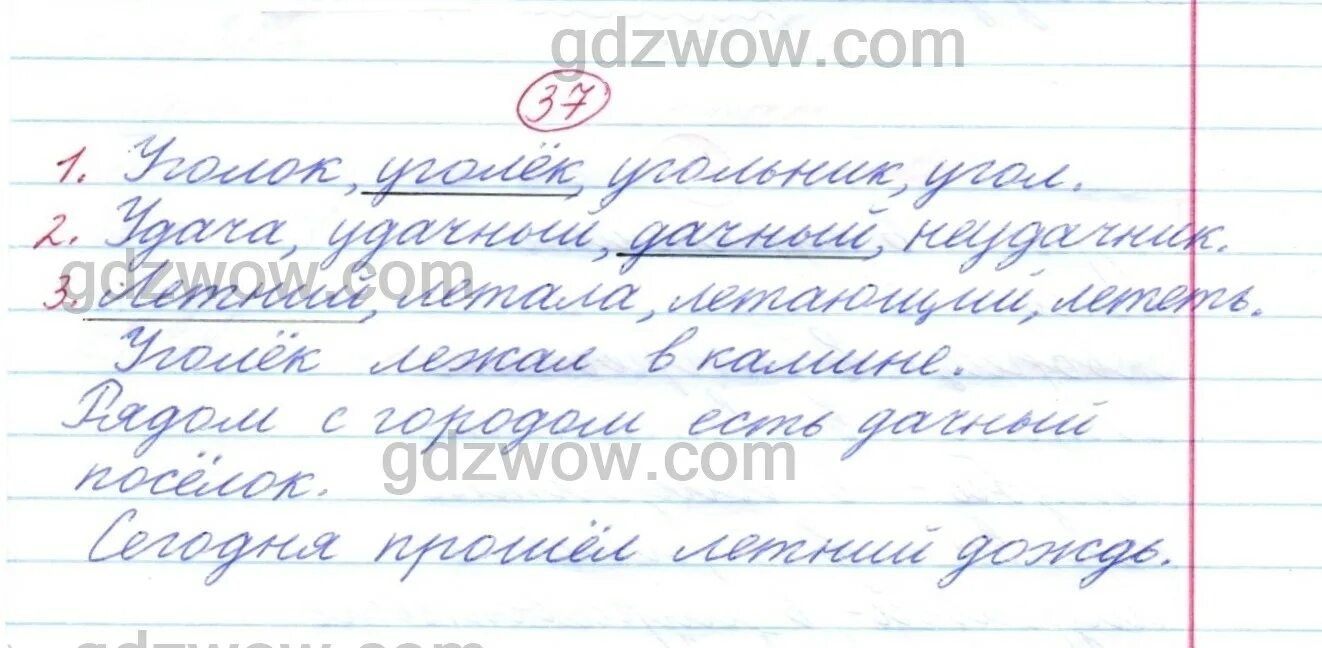 gdzwow.com
37
1. Уголок, уголёк, угольник, угол.
2. Удача, удачный, дачный, неудачник.
gdzwow.com
3. Летний, летала, летающий, лететь.
Уголёк лежал в камине.
Рядом с городом есть дачный
gdzwow.com
посёлок.
Сегодня прошёл летний дождь.
gdzwow.com